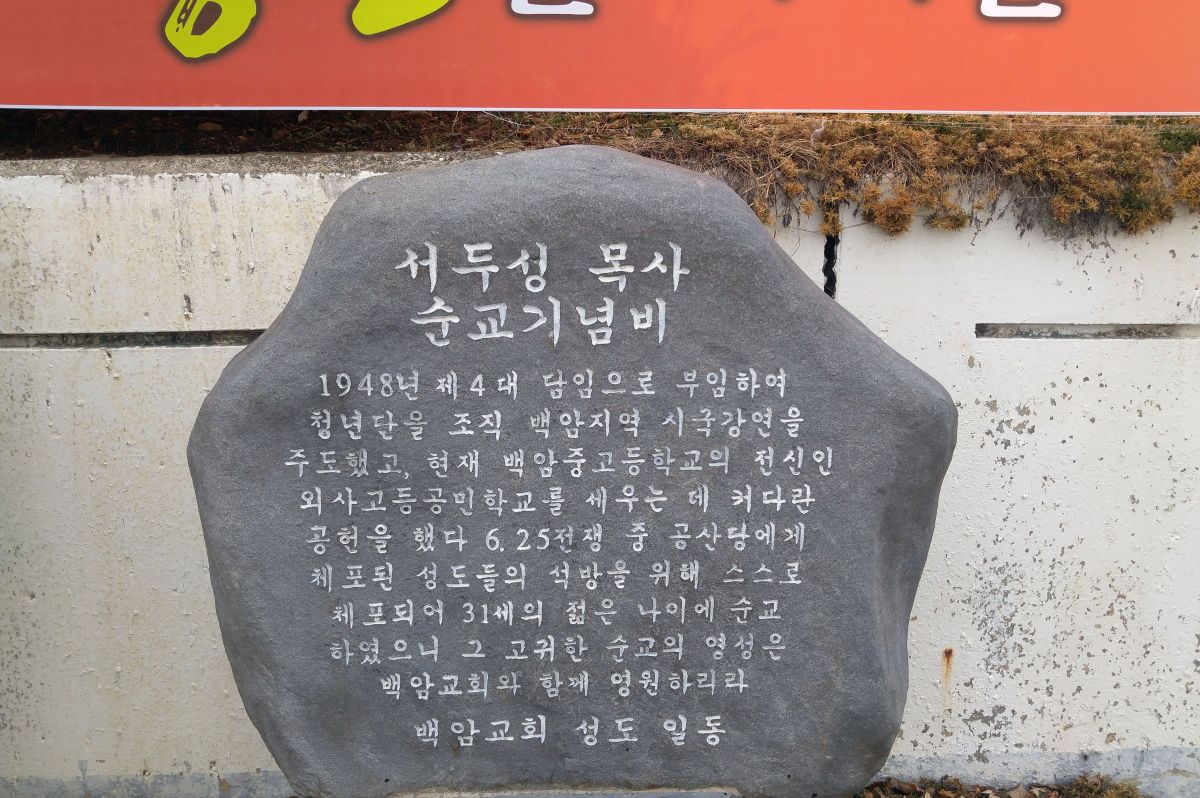 서두성 목사
순교기념비
1948년 제4대 담임으로 부임하여
청년단을 조직 백암지역 시국강연을
주도했고, 현재 백암중고등학교의 전신인
외사고등공민학교를 세우는 데 커다란
공헌을 했다 6.25전쟁 중 공산당에게
체포된 성도들의 석방을 위해 스스로
체포되어 31세의 젊은 나이에 순교
하였으니 그 고귀한 순교의 영성은
백암교회와 함께 영원하리라
백암교회 성도 일동